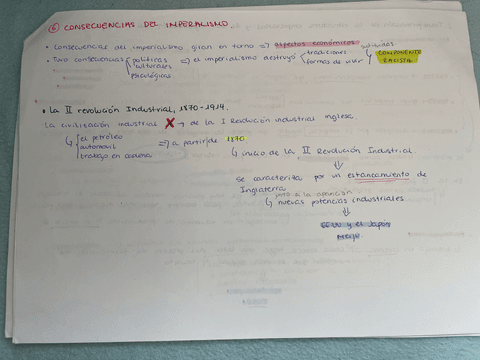 ⑥ CONSECUENCIAS DEL IMPERIALISMO.
• Consecuencias del imperialismo giran en torno => aspectos económicos
• Tuvo consecuencias políticas culturales psicológicas => el imperialismo destruyó tradiciones formas de vivir culturas COMPONENTE RACISTA
• La II revolución Industrial, 1870-1914.
La civilización industrial X de la I Revolución industrial inglesa
↳ el petróleo automóvil trabajo en cadena => a partir de 1870
↳ inicio de la II Revolución Industrial
⇓
se caracteriza por un estancamiento de
Inglaterra junto a la aparición
↳ nuevas potencias industriales
⇓
EEUU y el Japón
Meiji